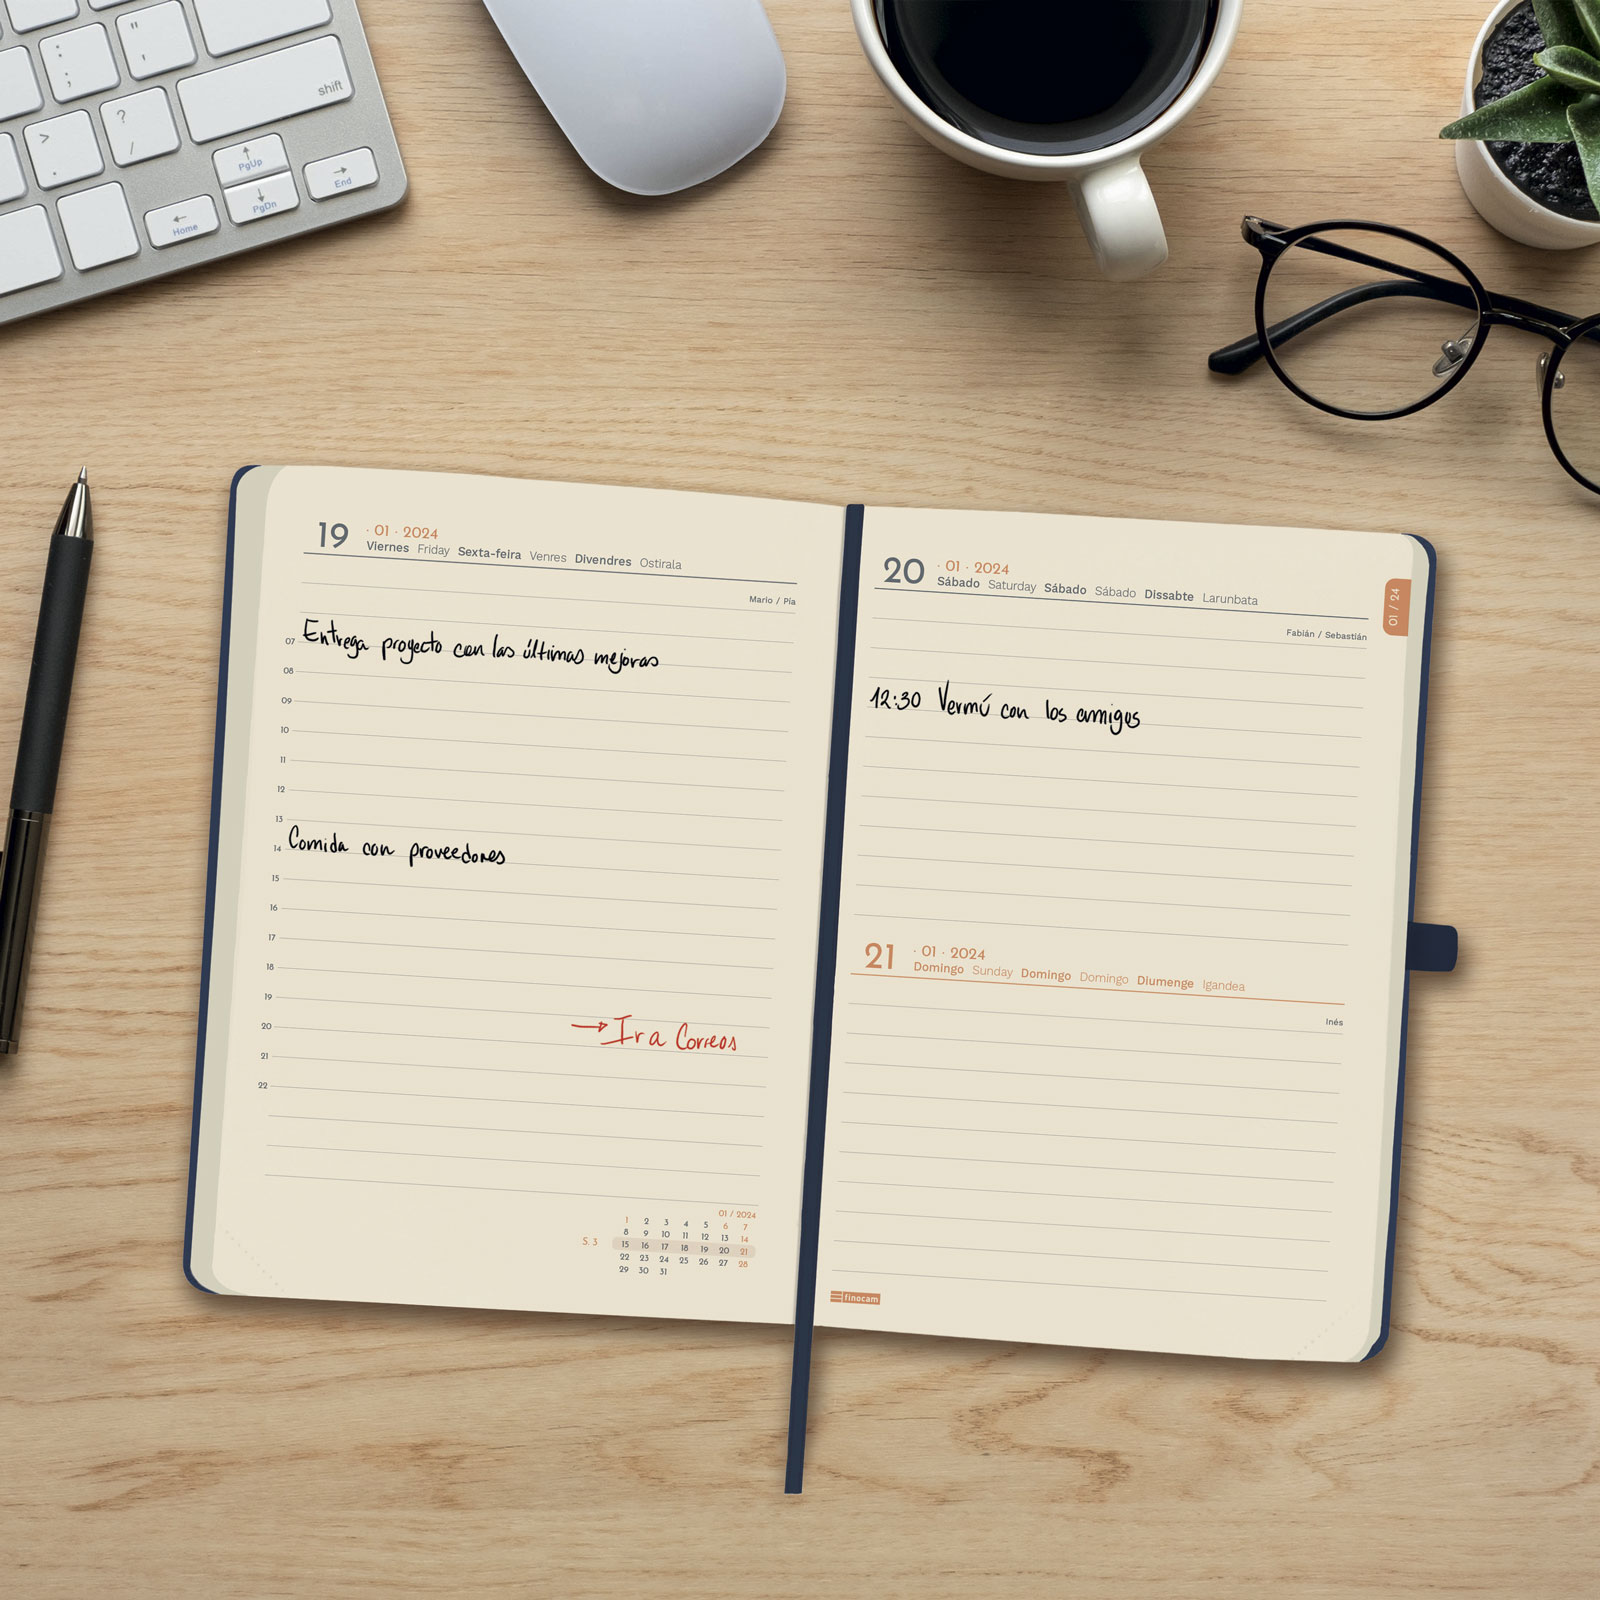 " '
: ;
shift
? /
> .
PgUp
End
PgDn
Home
19 · 01 · 2024
Viernes Friday Sexta-feira Venres Divendres Ostirala
Mario / Pía
07 Entrega proyecto con las últimas mejoras
08
09
10
11
12
13
14 Comida con proveedores
15
16
17
18
19
20 → Ir a Correos
21
22
01 / 2024
1 2 3 4 5 6 7
8 9 10 11 12 13 14
S. 3 15 16 17 18 19 20 21
22 23 24 25 26 27 28
29 30 31
20 · 01 · 2024
Sábado Saturday Sábado Sábado Dissabte Larunbata
01 / 24
Fabián / Sebastián
12:30 Vermú con los amigos
21 · 01 · 2024
Domingo Sunday Domingo Domingo Diumenge Igandea
Inés
finocam